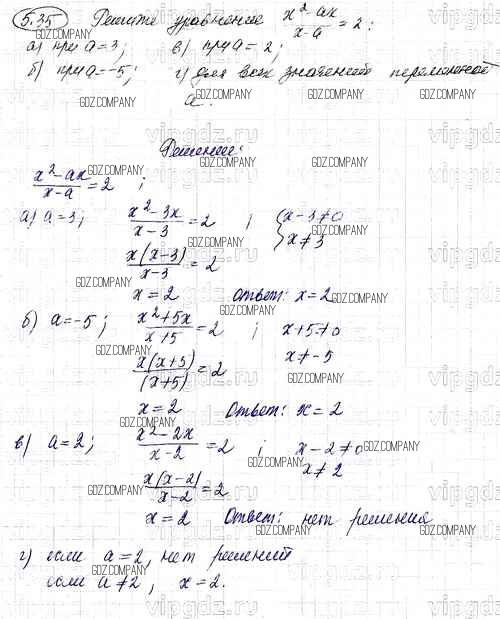 5.35 Решите уравнение x²-ax/x-a = 2:
а) при a=3; в) при a=2;
б) при a=-5; г) для всех значений переменной
a.
Решение:
x²-ax/x-a = 2 ;
а) a=3; x²-3x/x-3 = 2 ; { x-3≠0
x≠3
x(x-3)/x-3 = 2
x=2 Ответ: x=2
б) a=-5; x²+5x/x+5 = 2 ; x+5≠0
x≠-5
x(x+5)/(x+5) = 2
x=2 Ответ: x=2
в) a=2; x²-2x/x-2 = 2 ; x-2≠0
x≠2
x(x-2)/x-2 = 2
x=2 Ответ: нет решения
г) если a=2, нет решений
если a≠2, x=2.
GDZ.COMPANY
vipgdz.ru